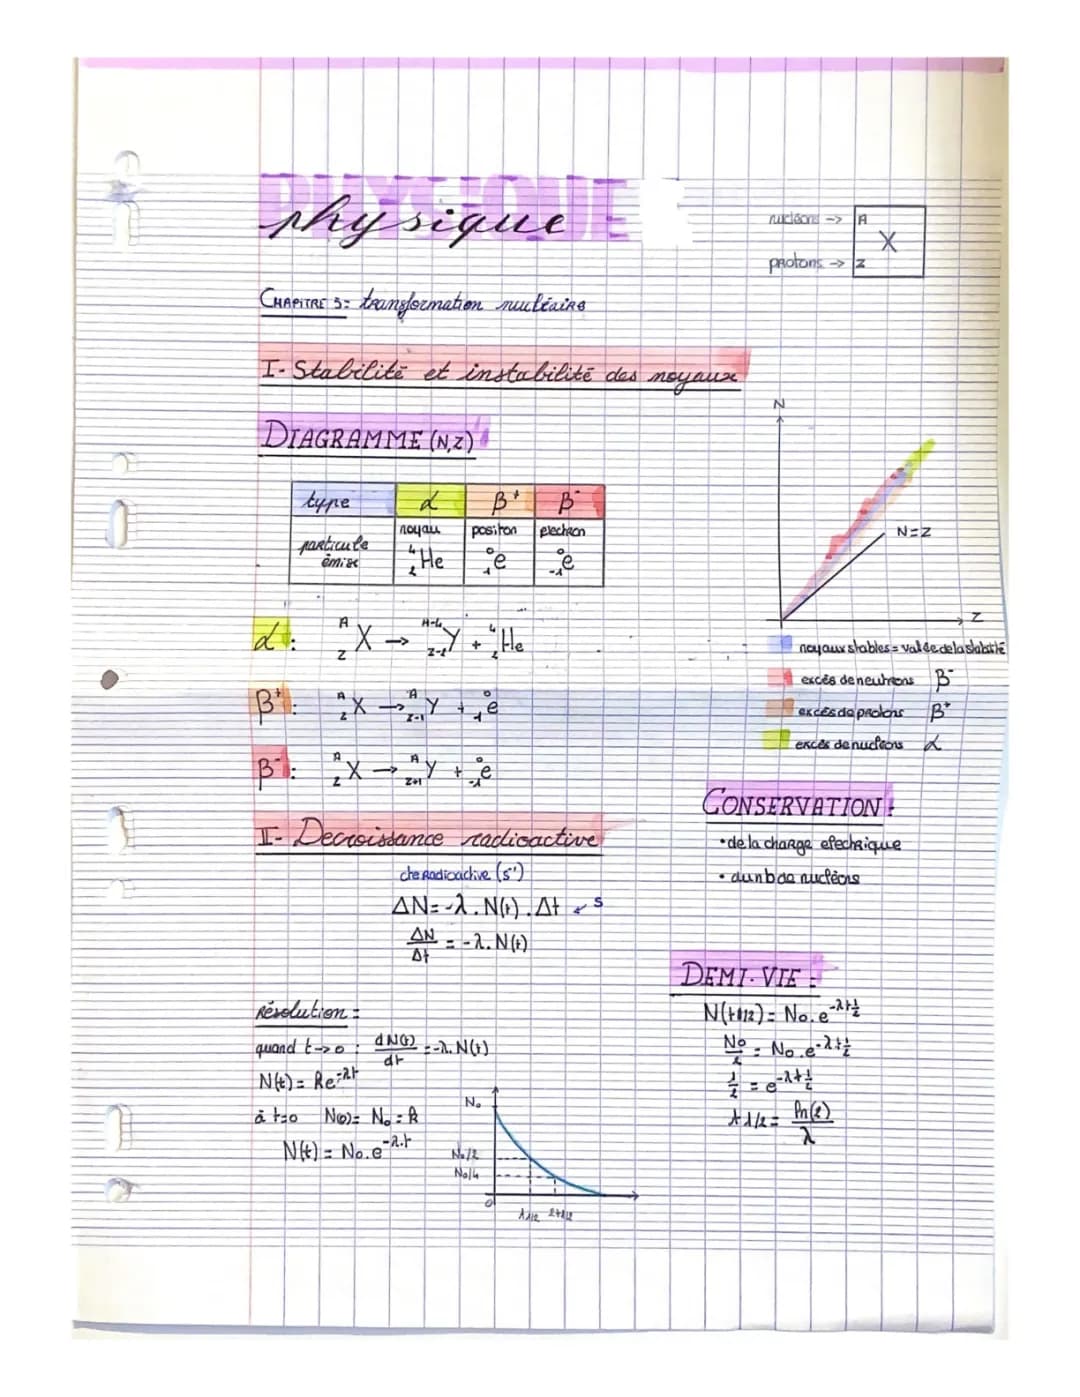 PHYSIQUE
physique
nucléons -> A
X
protons -> Z
CHAPITRE 5: transformation nucléaire
I- Stabilité et instabilité des noyaux
DIAGRAMME (N,Z)
type α β⁺ β⁻
particule émise
noyau ⁴₂He
positon ⁰₁e
electron ⁰₋₁e
α : ᴬ_Z X → ᴬ⁻⁴_Z-2 Y + ⁴₂He
β⁺ : ᴬ_Z X → ᴬ_Z-1 Y + ⁰₁e
β⁻ : ᴬ_Z X → ᴬ_Z+1 Y + ⁰₋₁e
N
N=Z
Z
noyaux stables = vallée de la stabilité
excés de neutrons β⁻
excés de protons β⁺
excés de nucléons α
CONSERVATION :
• de la charge electrique
• du nb de nucléons
II- Decroissance radioactive
cte Radioactive (s⁻¹)
ΔN = -λ . N(t) . Δt ← s
ΔN/Δt = -λ. N(t)
résolution :
quand t->0 : dN(t)/dt = -λ. N(t)
N(t) = Re^-λt
à t=0 N(0) = N₀ = R
N(t) = N₀.e^-λ.t
N₀
N₀/2
N₀/4
0
t1/2 2t1/2
DEMI-VIE :
N(t1/2) = N₀.e^-λt1/2
N₀/2 = N₀.e^-λt1/2
1/2 = e^-λt1/2
t1/2 = ln(2)/λ